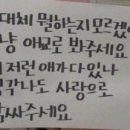 대체 뭘하는지 모르겠
냥 애교로 봐주세요
저런 애가 다 있나
각나도 사랑으로
싸주세요